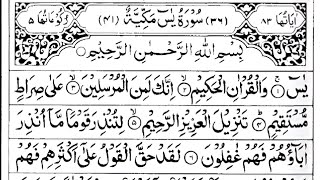 اٰیَاتُهَا ٨٣ (٣٦) سُوْرَةُ یٰسٓ مَكِّیَّةٌ (٤١) رُكُوْعَاتُهَا ٥
بِسْمِ اللّٰهِ الرَّحْمٰنِ الرَّحِیْمِ
یٰسٓ ۝١ وَالْقُرْاٰنِ الْحَكِیْمِ ۝٢ اِنَّكَ لَمِنَ الْمُرْسَلِیْنَ ۝٣ عَلٰی صِرَاطٍ
مُّسْتَقِیْمٍ ۝٤ تَنْزِیْلَ الْعَزِیْزِ الرَّحِیْمِ ۝٥ لِتُنْذِرَ قَوْمًا مَّاۤ اُنْذِرَ
اٰبَآؤُهُمْ فَهُمْ غٰفِلُوْنَ ۝٦ لَقَدْ حَقَّ الْقَوْلُ عَلٰۤی اَكْثَرِهِمْ فَهُمْ